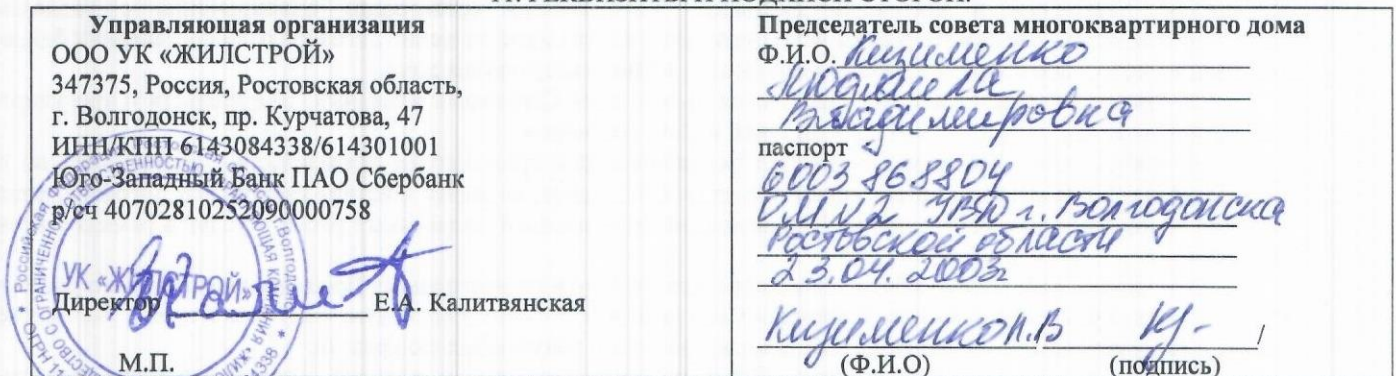 Управляющая организация
ООО УК «ЖИЛСТРОЙ»
347375, Россия, Ростовская область,
г. Волгодонск, пр. Курчатова, 47
ИНН/КПП 6143084338/614301001
Юго-Западный Банк ПАО Сбербанк
р/сч 40702810252090000758
УК «ЖИЛСТРОЙ»
Директор Е.А. Калитвянская
М.П.
Председатель совета многоквартирного дома
Ф.И.О. Кизименко
Людмила
Владимировна
паспорт
6003 868804
ОМ N2 УВД г. Волгодонска
Ростовской области
23.04.2003г
Кизименко Л.В /
(Ф.И.О) (подпись)